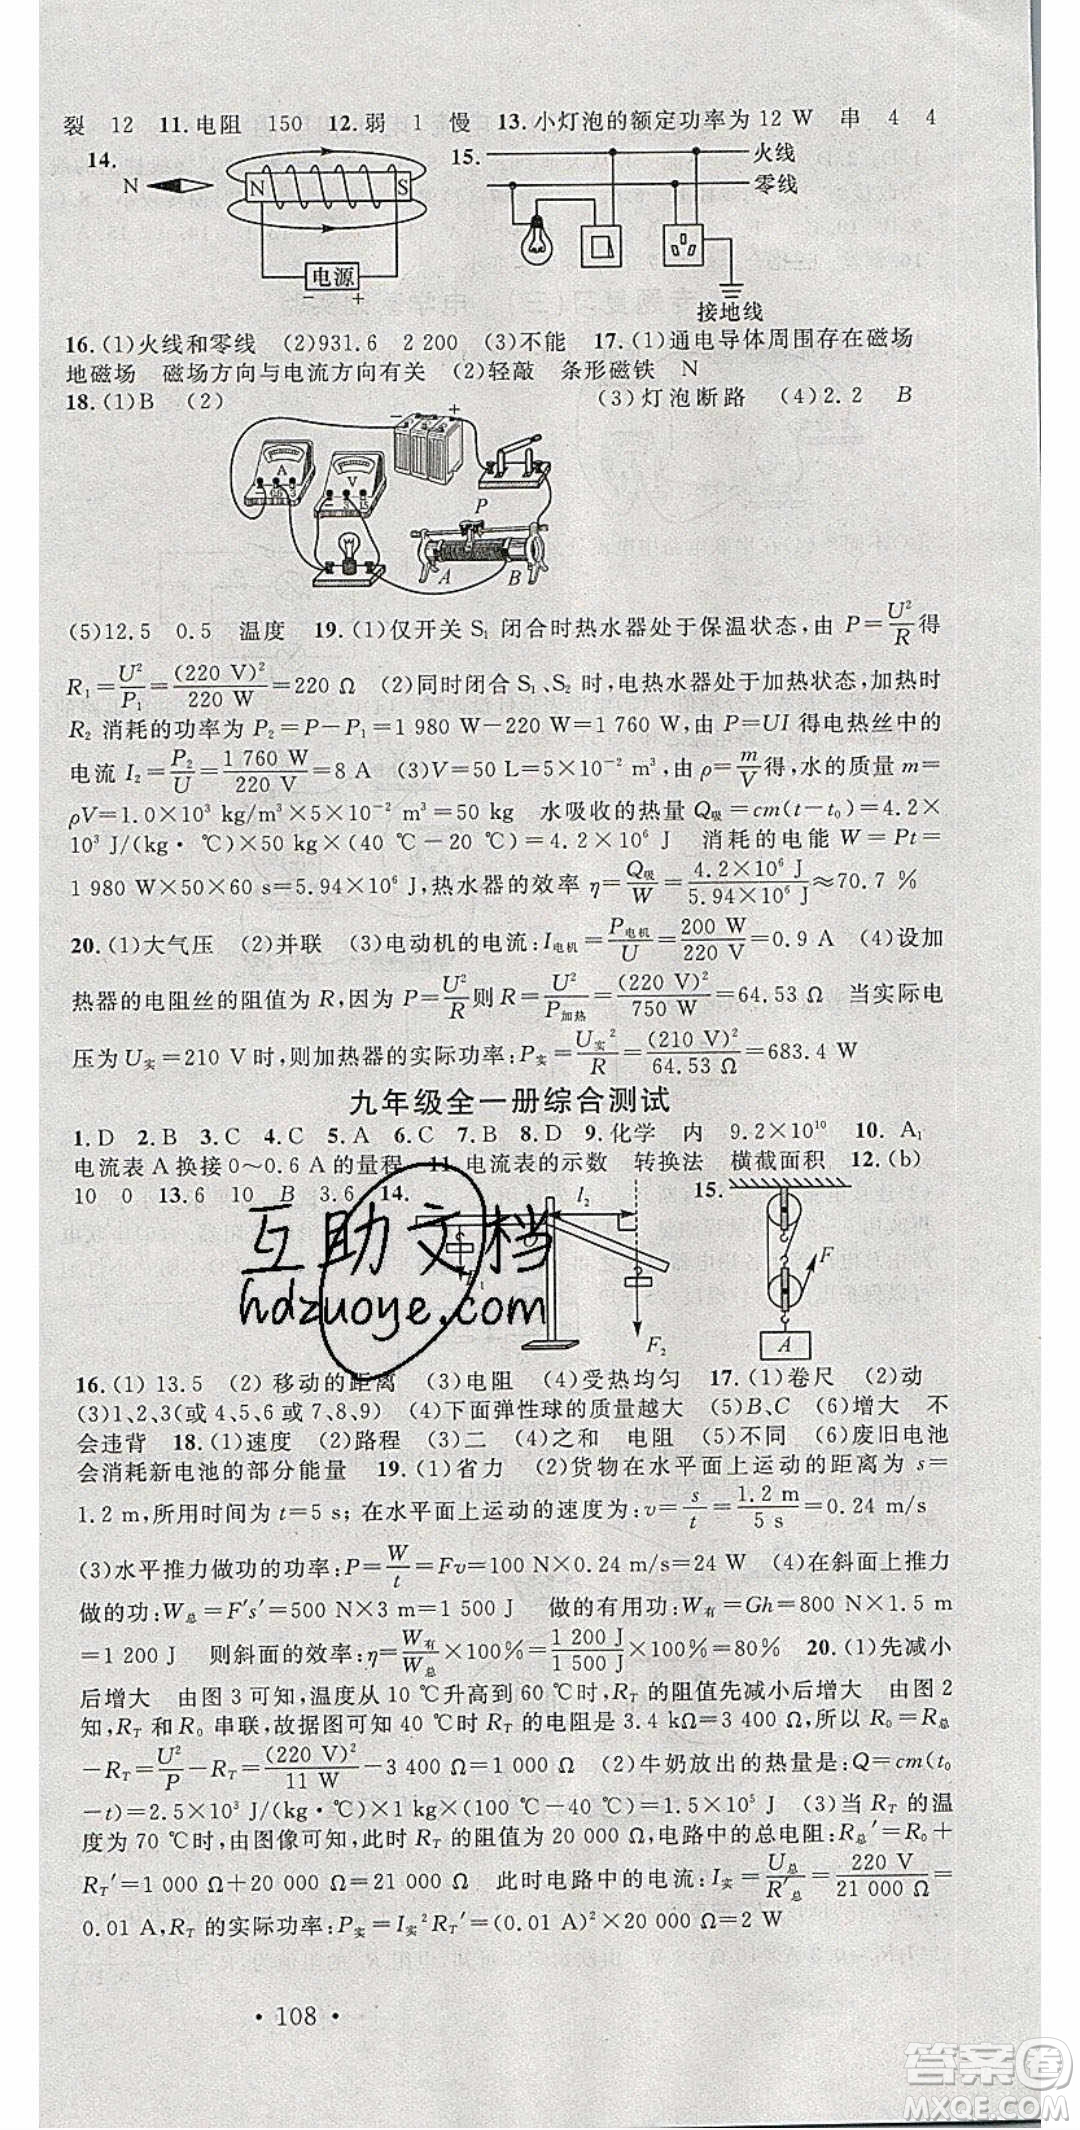 裂 12 11.电阻 150 12.弱 1 慢 13.小灯泡的额定功率为 12 W 串 4 4
14. N N S 电源 - +
15. 火线 零线 接地线
16.(1)火线和零线 (2)931.6 2 200 (3)不能 17.(1)通电导体周围存在磁场
地磁场 磁场方向与电流方向有关 (2)轻敲 条形磁铁 N
18.(1)B (2) (3)灯泡断路 (4)2.2 B
- + A V P A B
(5)12.5 0.5 温度 19.(1)仅开关 S₁ 闭合时热水器处于保温状态,由 P=U²/R得
R₁=U²/P₁=(220 V)²/220 W=220 Ω (2)同时闭合 S₁、S₂ 时,电热水器处于加热状态,加热时
R₂ 消耗的功率为 P₂=P-P₁=1 980 W-220 W=1 760 W,由 P=UI 得电热丝中的
电流 I₂=P₂/U=1 760 W/220 V=8 A (3)V=50 L=5×10⁻² m³,由 ρ=m/V得,水的质量 m=
ρV=1.0×10³ kg/m³×5×10⁻² m³=50 kg 水吸收的热量 Q吸=cm(t-t₀)=4.2×
10³ J/(kg·℃)×50 kg×(40 ℃-20 ℃)=4.2×10⁶ J 消耗的电能 W=Pt=
1 980 W×50×60 s=5.94×10⁶ J,热水器的效率 η=Q吸/W=4.2×10⁶ J/5.94×10⁶ J≈70.7 %
20.(1)大气压 (2)并联 (3)电动机的电流:I电机=P电机/U=200 W/220 V=0.9 A (4)设加
热器的电阻丝的阻值为 R,因为 P=U²/R则 R=U²/P加热=(220 V)²/750 W=64.53 Ω 当实际电
压为 U实=210 V 时,则加热器的实际功率:P实=U实²/R=(210 V)²/64.53 Ω=683.4 W
九年级全一册综合测试
1.D 2.B 3.C 4.C 5.A 6.C 7.B 8.D 9.化学 内 9.2×10¹⁰ 10. A₁
电流表 A 换接 0～0.6 A 的量程 11.电流表的示数 转换法 横截面积 12.(b)
10 0 13.6 10 B 3.6 14. l₂ F₂
15. F A
互助文档
hdzuoye.com
16.(1) 13.5 (2) 移动的距离 (3)电阻 (4)受热均匀 17.(1)卷尺 (2)动
(3)1、2、3(或 4、5、6 或 7、8、9) (4)下面弹性球的质量越大 (5)B、C (6)增大 不
会违背 18.(1)速度 (2)路程 (3)二 (4)之和 电阻 (5)不同 (6)废旧电池
会消耗新电池的部分能量 19.(1)省力 (2)货物在水平面上运动的距离为 s=
1.2 m,所用时间为 t=5 s; 在水平面上运动的速度为:v=s/t=1.2 m/5 s=0.24 m/s
(3)水平推力做功的功率:P=W/t=Fv=100 N×0.24 m/s=24 W (4)在斜面上推力
做的功:W总=F's'=500 N×3 m=1 500 J 做的有用功:W有=Gh=800 N×1.5 m
=1 200 J 则斜面的效率:η=W有/W总×100%=1 200 J/1 500 J×100%=80% 20.(1)先减小
后增大 由图 3 可知,温度从 10 ℃升高到 60 ℃时,R_T 的阻值先减小后增大 由图 2
知,R_T 和 R₀ 串联,故据图可知 40 ℃时 R_T 的电阻是 3.4 kΩ=3 400 Ω,所以 R₀=R总
-R_T=U²/P-R_T=(220 V)²/11 W-3 400 Ω=1 000 Ω (2)牛奶放出的热量是:Q=cm(t₀
-t)=2.5×10³ J/(kg·℃)×1 kg×(100 ℃-40 ℃)=1.5×10⁵ J (3)当 R_T 的温
度为 70 ℃时,由图像可知,此时 R_T 的阻值为 20 000 Ω,电路中的总电阻:R总'=R₀+
R_T'=1 000 Ω+20 000 Ω=21 000 Ω 此时电路中的电流:I实=U总/R'总=220 V/21 000 Ω=
0.01 A,R_T 的实际功率:P实=I实²R_T'=(0.01 A)²×20 000 Ω=2 W
· 108 ·
答案圈
MXQE.COM